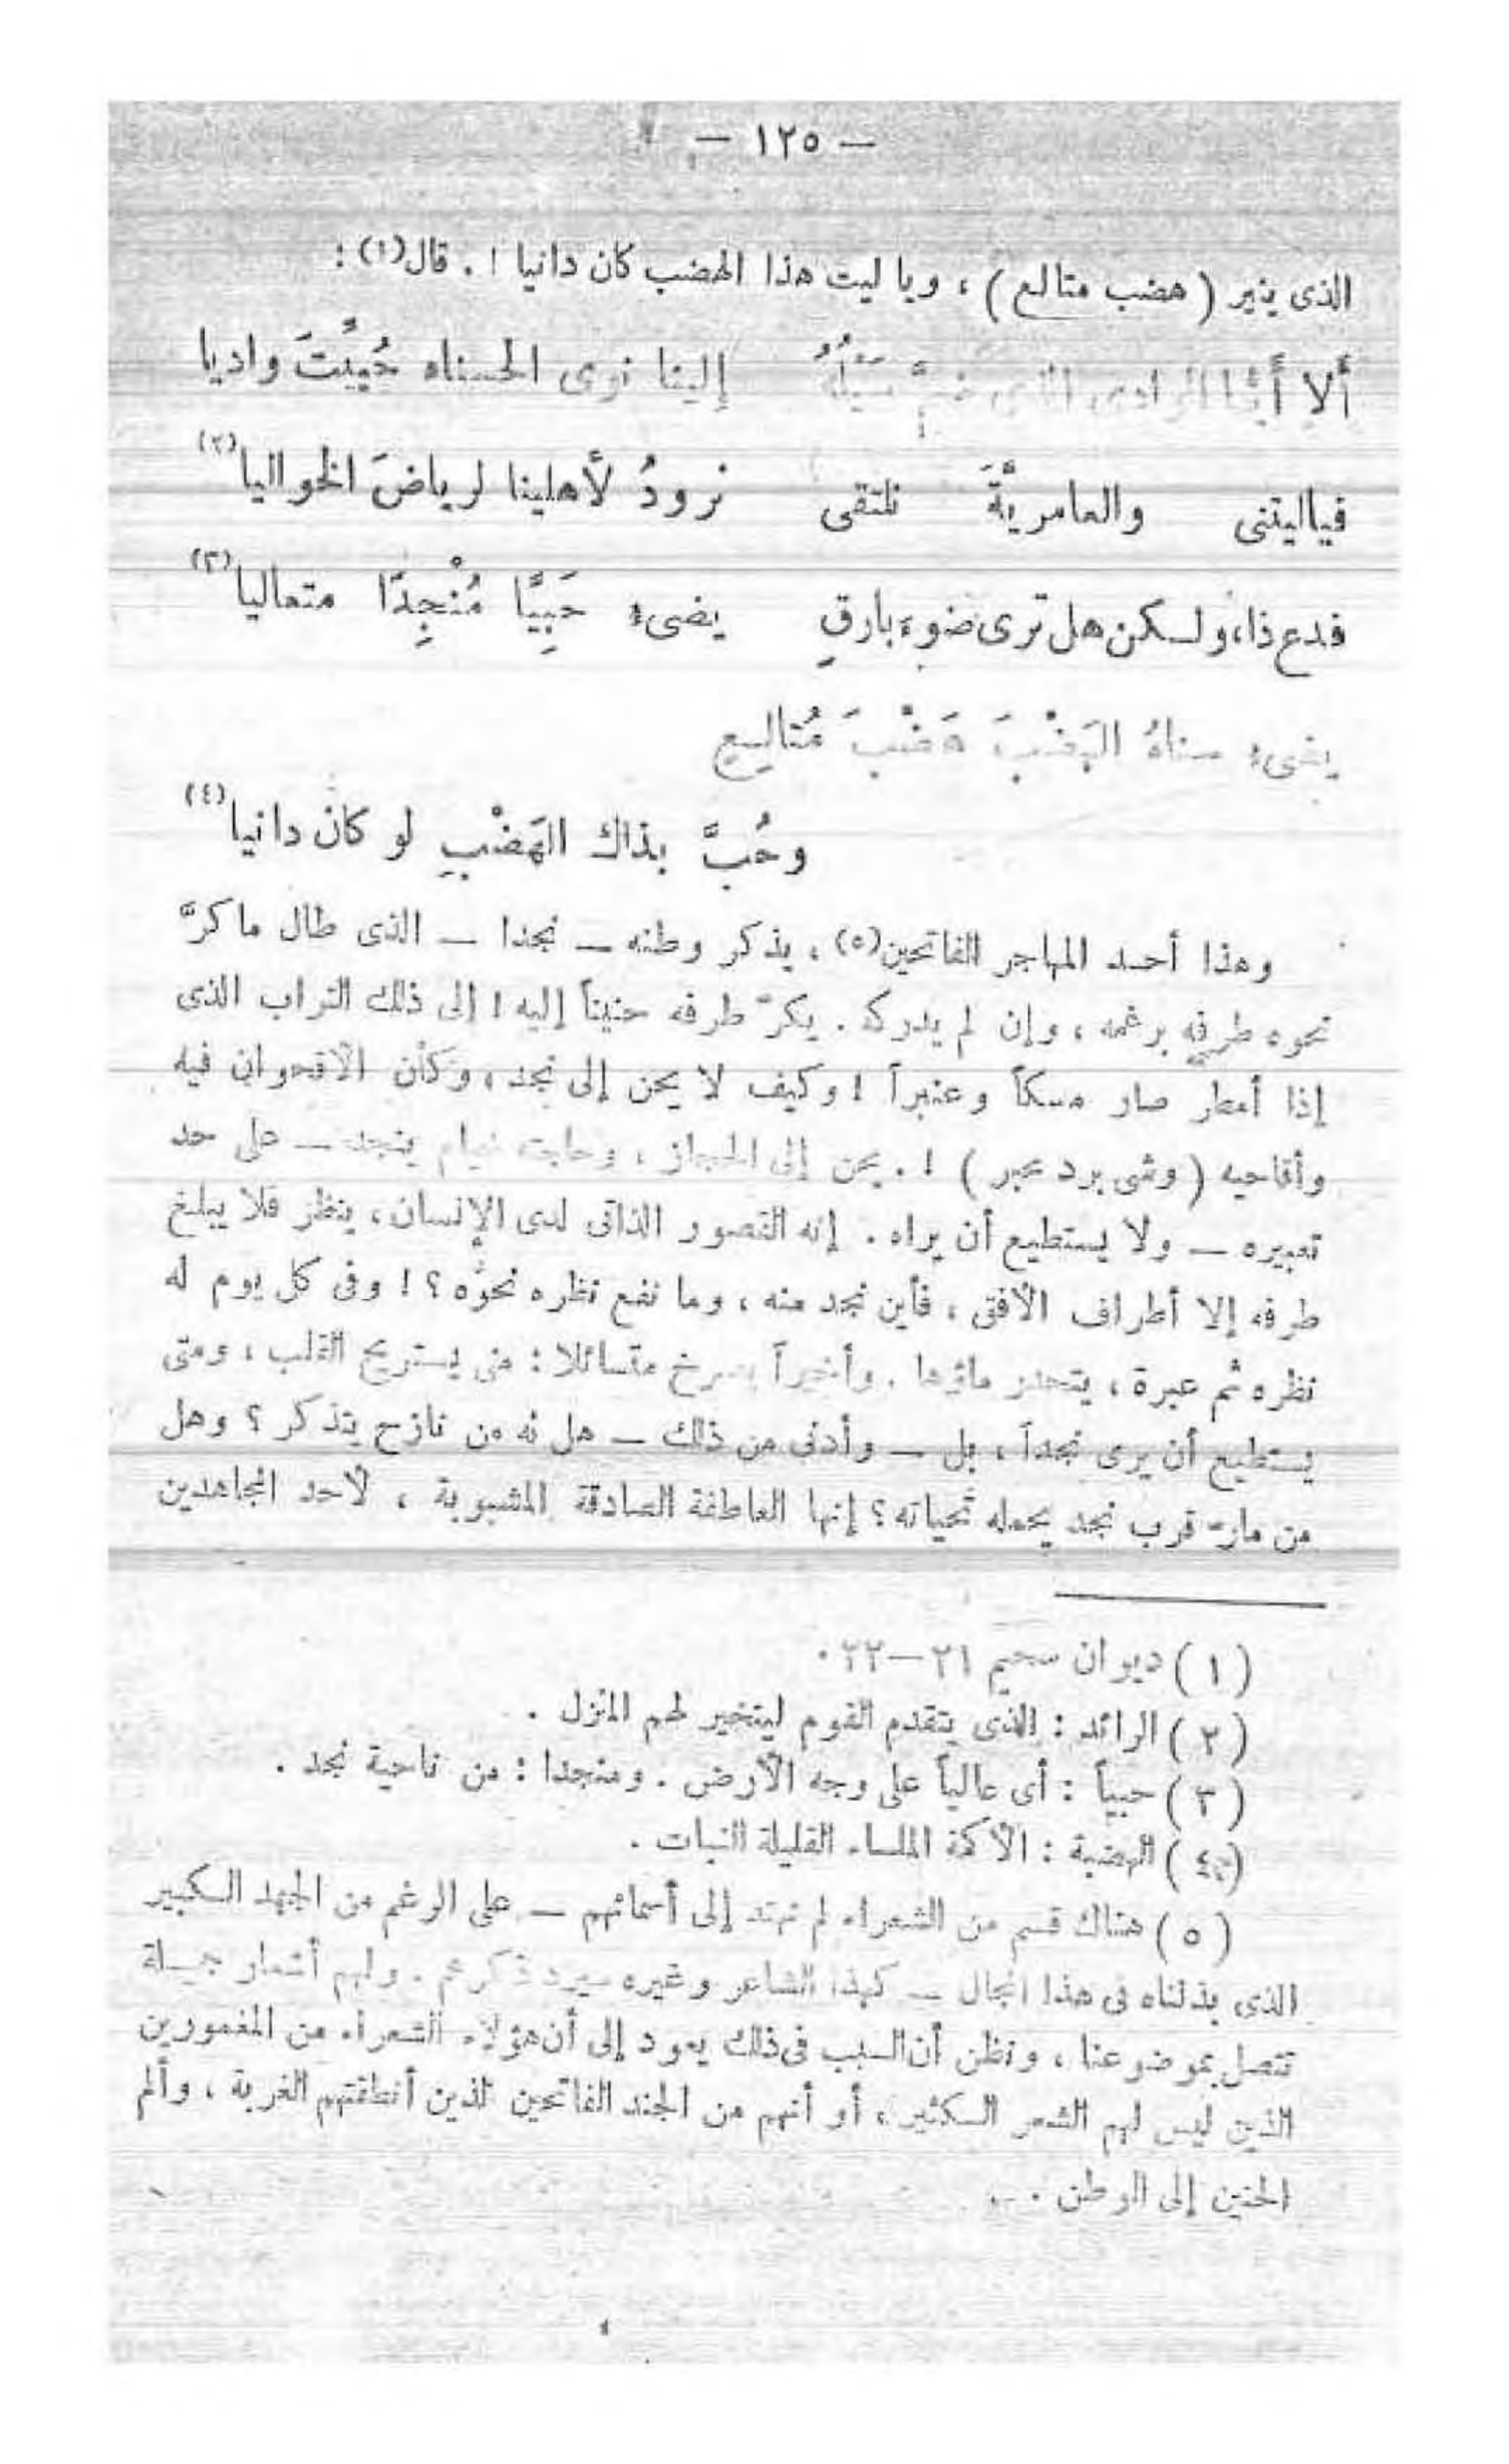 — ١٢٥ —
الذى ينير ( هضب متالع ) ، ويا ليت هذا الهضب كان دانيا ! . قال(١) :
ألا أيُّها الوادى الذى ضمَّ سَيْلُهُ إلينا نوى الحسناه حُيِّيتَ واديا
فياليتنى والعامريَّةَ نلتقى نرودُ لأهلينا لرياضَ الخواليا(٢)
فدع ذا، ولكن هل ترى ضوء بارقٍ يضىء حَبِيًّا مُنْجِدًا متعاليا(٣)
يضىء سناهُ الهَضْبَ هَضْبَ مُتاليعٍ
وحُبَّ بذاك الهَضْبِ لو كان دانيا(٤)
وهذا أحد المهاجر الفاتحين(٥) ، يذكر وطنه — نجدا — الذى طال ما كرَّ
نحوه طرفه برغمه ، وإن لم يدركه . يكرّ طرفه حنيناً إليه ! إلى ذلك التراب الذى
إذا أمطر صار مسكاً وعنبراً ! وكيف لا يحن إلى نجد ، وكأن الأقحوان فيه
وأقاحيه ( وشى برد محبر ) ! . يحن إلى الحجاز ، وحاجته خيام بنجد — على حد
تعبيره — ولا يستطيع أن يراه . إنه التصور الذاتى لدى الإنسان ، ينظر فلا يبلغ
طرفه إلا أطراف الأفق ، فأين نجد منه ، وما نفع نظره نحوه ؟ ! وفى كل يوم له
نظره ثم عبرة ، يتحدر ماؤها . وأخيراً يصرخ متسائلا : متى يستريح القلب ، ومتى
يستطيع أن يرى نجداً ، بل — وأدنى من ذلك — هل له من نازح يتذكر ؟ وهل
من مارّ قرب نجد يحمله تحياته ؟ إنها العاطفة الصادقة المشبوبة ، لأحد المجاهدين
( ١ ) ديوان سحيم ٢١—٢٢ .
( ٢ ) الرائد : الذى يتقدم القوم ليتخير لهم المنزل .
( ٣ ) حبياً : أى عالياً على وجه الأرض . ومنجدا : من ناحية نجد .
( ٤ ) الهضبة : الأكمة الملساء القليلة النبات .
( ٥ ) هناك قسم من الشعراء لم نهتد إلى أسمائهم — على الرغم من الجهد الكبير
الذى بذلناه فى هذا المجال — كهذا الشاعر وغيره سيرد ذكرهم . ولهم أشعار جميلة
تتصل بموضوعنا ، ونظن أن السبب فى ذلك يعود إلى أن هؤلاء الشعراء من المغمورين
الذين ليس لهم الشعر الكثير ، أو أنهم من الجند الفاتحين الذين أنطقتهم الغربة ، وألم
الحنين إلى الوطن .